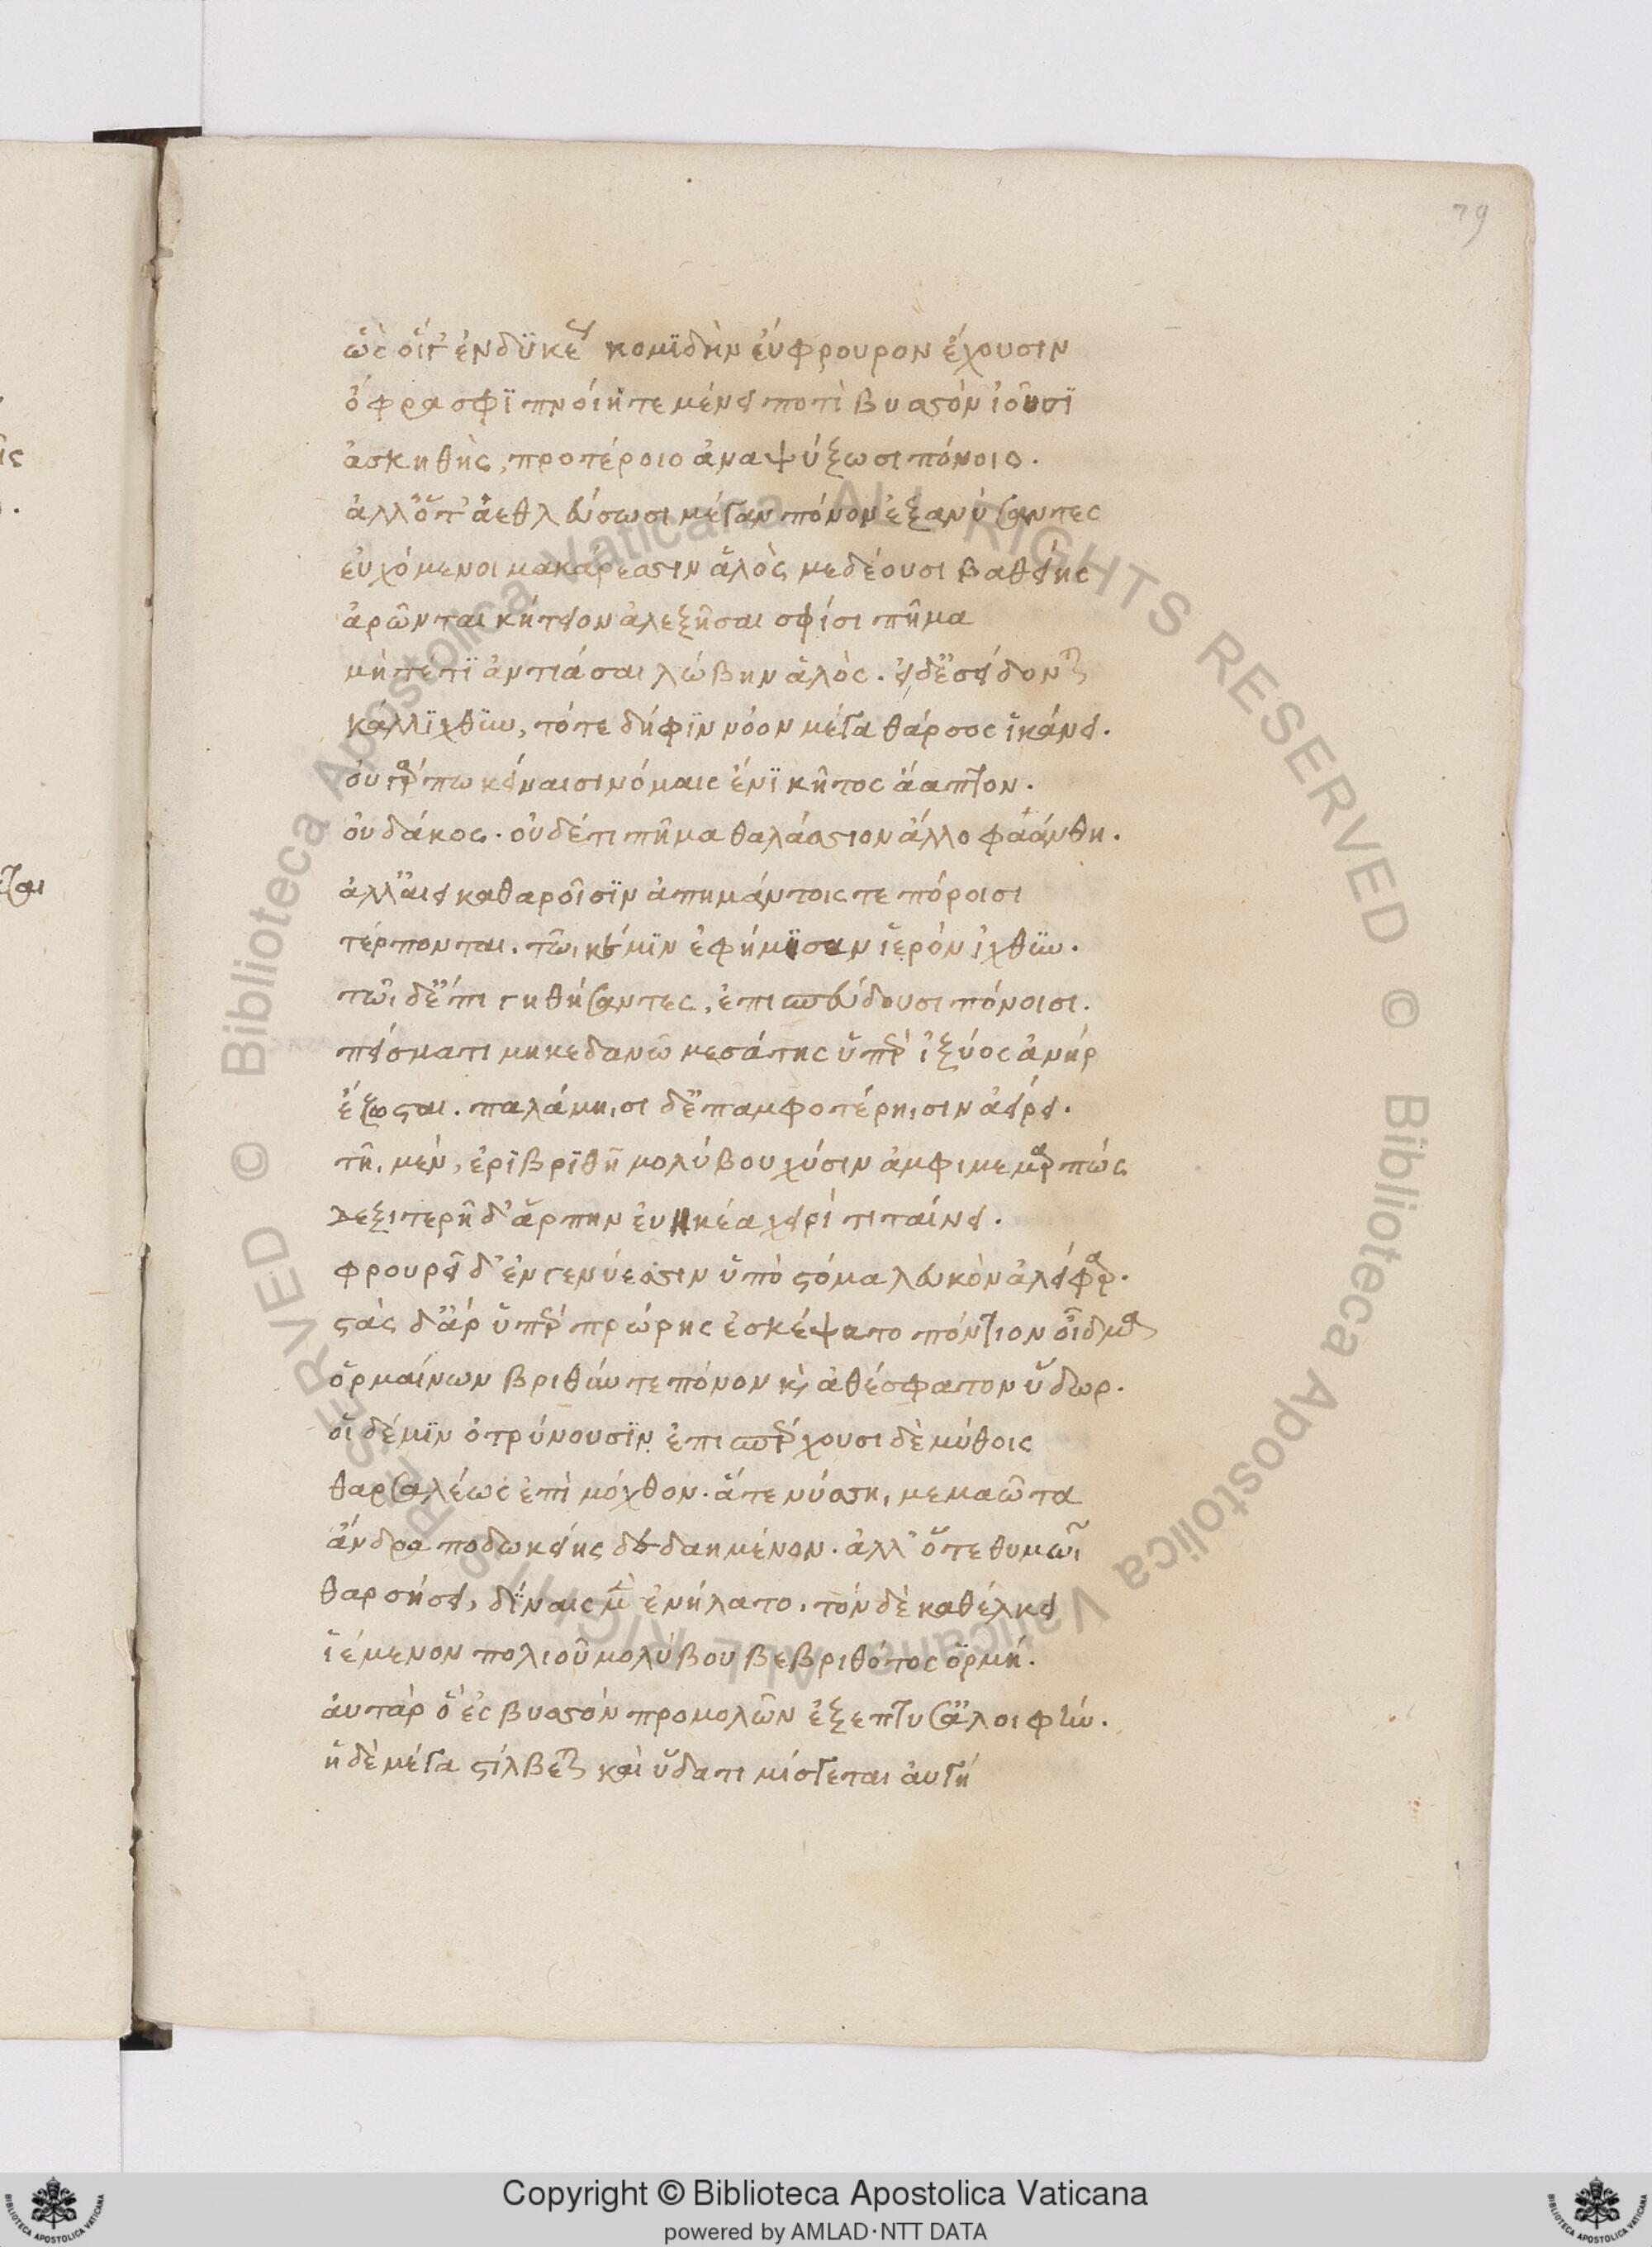 79
ὣς οἵγ' ἐνδϋκέως κομϊδὴν ἐύφρουρον ἔχουσιν
ὄφρα σφϊ πνοίήτε μένει ποτὶ βυσσὸν ἰοῦσϊ
ἀσκηθὴς, προτέροιο ἀναψύξωσι πόνοιο.
ἀλλ' ὅτ' ἀεθλεύσωσι μέγαν πόνον ἐξανύσαντες
εὐχόμενοι μακάρεσσιν ἁλὸς μεδέουσι βαθείης
ἀρῶνται κήτειον ἀλεξῆσαι σφίσι πῆμα
μήτέ τϊ ἀντιάσαι λώβην ἁλὸς. εἰ δ' ἐσείδονται
κάλλϊχθϋν, τότε δήφϊν νόον μέγα θάρσος ἱκάνει.
οὐ γάρ πω κείναισι νόμαις ἔνϊ κῆτος ἄαπτον.
οὐ δάκος. οὐδέ τι πῆμα θαλάσσιον ἄλλο φαάνθη.
ἀλλ' αἰεὶ καθαροῖσϊν ἀπημάντοις τε πόροισι
τέρπονται. τῶι καί μϊν ἐφήμϊσαν ἱερὸν ἰχθϋν.
τῶι δ' ἔπι γηθήσαντες, ἐπισπεύδουσι πόνοισι.
πείσματι μηκεδανῶ μεσάτης ὑπὲρ ἰξύος ἀνήρ
ἔζωσται. παλάμηισι δ' ἐπ' ἀμφοτέρηισιν ἀείρει.
τῆι μὲν, ἐρϊβρϊθῆ μολύβου χύσιν ἀμφιμεμαρπώς
δεξιτερῆ δ' ἅρπην εὐηκέα χειρί τιταίνει.
φρουρεῖ δ' ἐν γενύεσσιν ὑπὸ στόμα λευκὸν ἀλείφαρ.
στὰς δ' ἄρ ὑπὲρ πρώρης ἐσκέψατο πόντιον οἶδμα
ὁρμαίνων βριθύν τε πόνον καὶ ἀθέσφατον ὕδωρ.
οἱ δέ μϊν ὀτρύνουσϊν ἐπισπέρχουσι δὲ μύθοις
θαρσαλέως ἐπὶ μόχθον. ἅτε νύσσηι μεμαῶτα
ἄνδρα ποδωκείης δεδαημένον. ἀλλ' ὅτε θυμῶι
θαρσήσει, δίναις μὲν ἐνήλατο. τὸν δὲ καθέλκει
ἱέμενον πολιοῦ μολύβου βεβριθότος ὁρμή.
αὐτὰρ ὅ' ἐς βυσσὸν προμολῶν ἐξέπτυσ' ἀλοιφήν.
ἡ δὲ μέγα στίλβει καὶ ὕδατι μίσγεται αὐγή